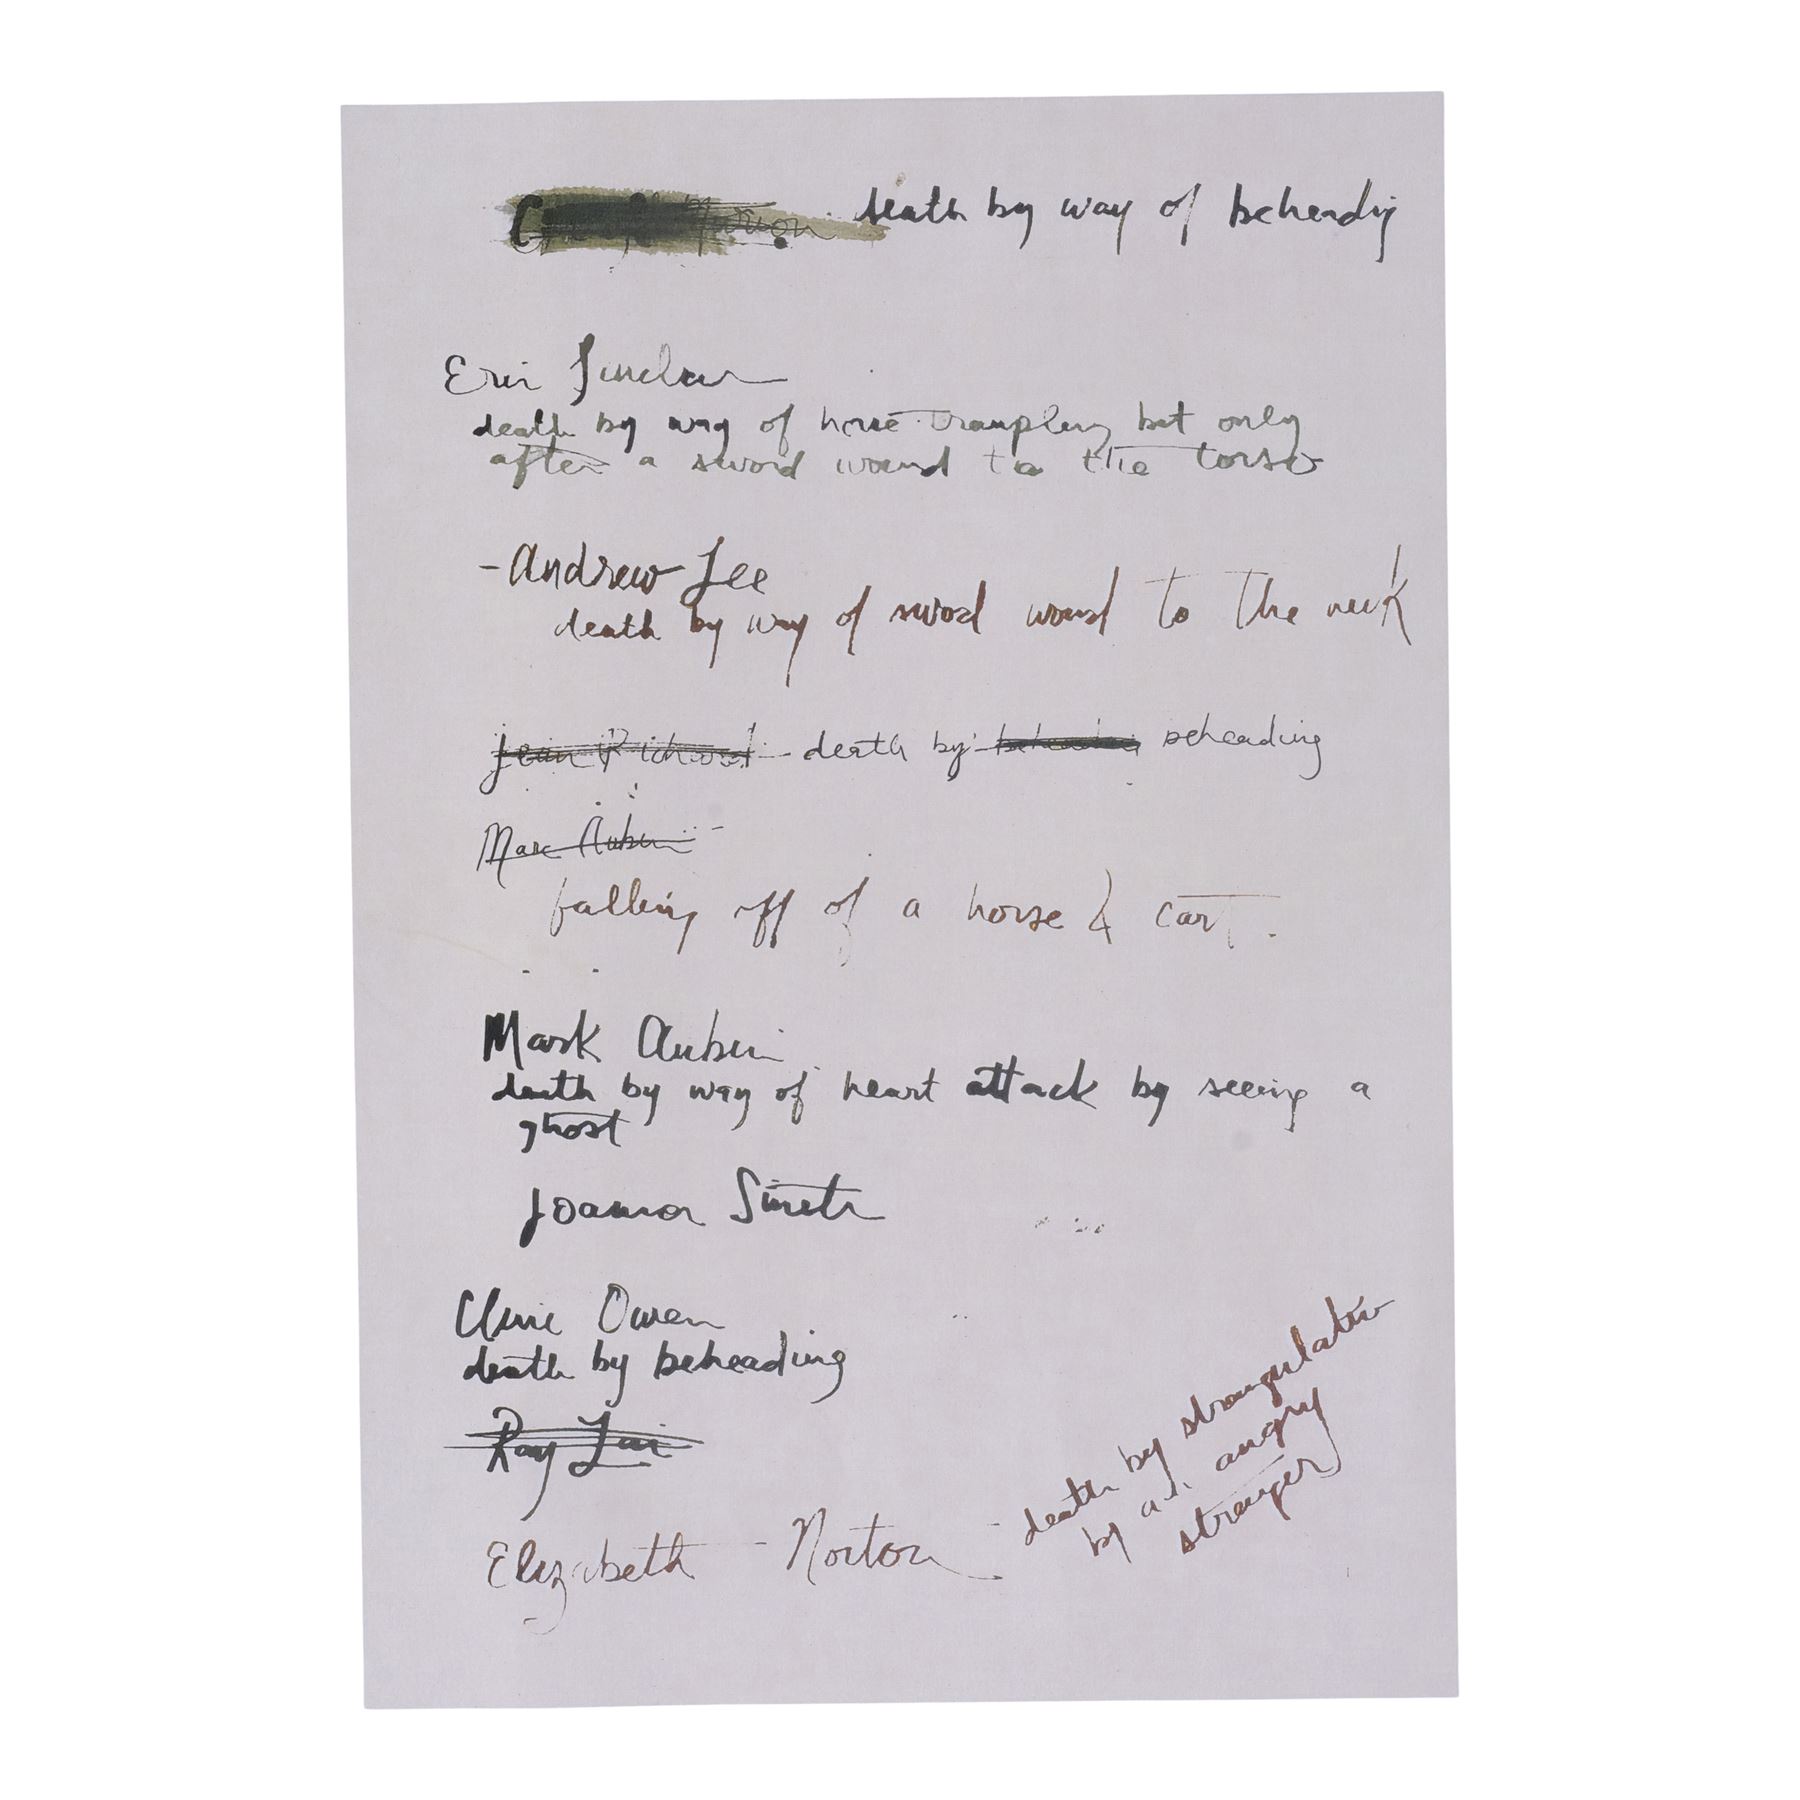 death by way of beheadig
Eric Sinclair
death by way of horse trampling but only
after a sword wound to the torso
- Andrew Lee
death by way of sword wound to the neck
Jean Richard - death by beheading beheading
Marc Aubin -
falling off of a horse & cart.
Mark Aubin
death by way of heart attack by seeing a
ghost
Joanna Smith
Clive Owen
death by beheading
Ray Lai
Elizabeth - Norton - death by strangulation
by an angry
stranger